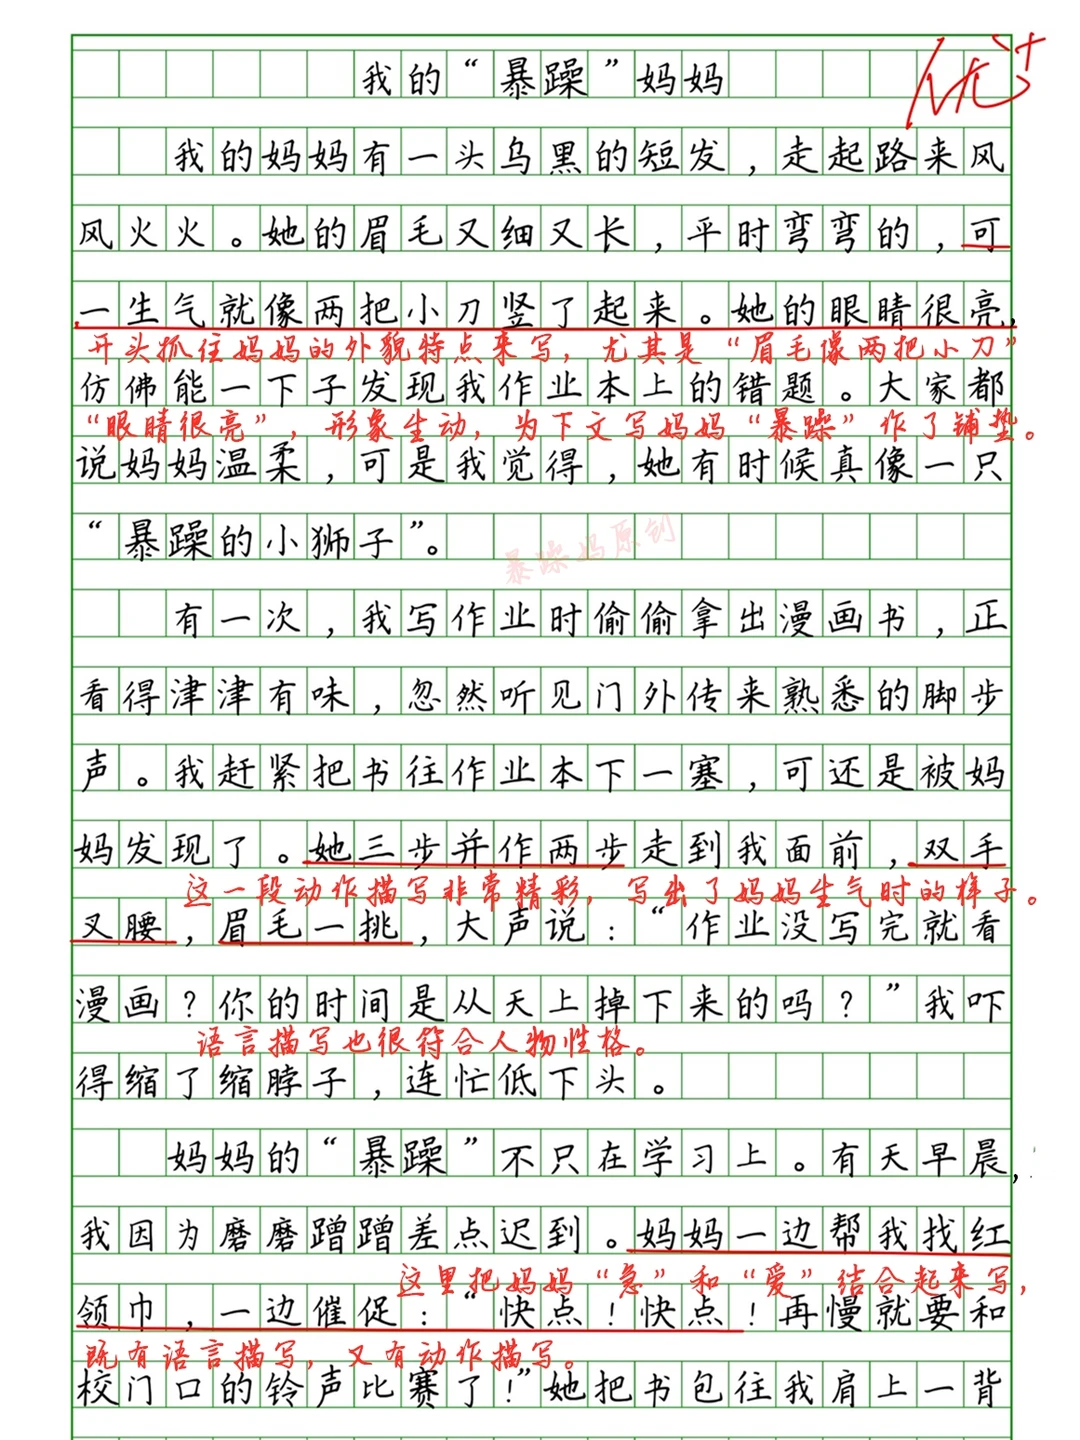 我的“暴躁”妈妈
优+
我的妈妈有一头乌黑的短发，走起路来风
风火火。她的眉毛又细又长，平时弯弯的，可
一生气就像两把小刀竖了起来。她的眼睛很亮，
开头抓住妈妈的外貌特点来写，尤其是“眉毛像两把小刀”
仿佛能一下子发现我作业本上的错题。大家都
“眼睛很亮”，形象生动，为下文写妈妈“暴躁”作了铺垫。
说妈妈温柔，可是我觉得，她有时候真像一只
“暴躁的小狮子”。
暴躁妈原创
有一次，我写作业时偷偷拿出漫画书，正
看得津津有味，忽然听见门外传来熟悉的脚步
声。我赶紧把书往作业本下一塞，可还是被妈
妈发现了。她三步并作两步走到我面前，双手
这一段动作描写非常精彩，写出了妈妈生气时的样子。
叉腰，眉毛一挑，大声说：“作业没写完就看
漫画？你的时间是从天上掉下来的吗？”我吓
语言描写也很符合人物性格。
得缩了缩脖子，连忙低下头。
妈妈的“暴躁”不只在学习上。有天早晨，
我因为磨磨蹭蹭差点迟到。妈妈一边帮我找红
这里把妈妈“急”和“爱”结合起来写，
领巾，一边催促：“快点！快点！再慢就要和
既有语言描写，又有动作描写。
校门口的铃声比赛了！”她把书包往我肩上一背